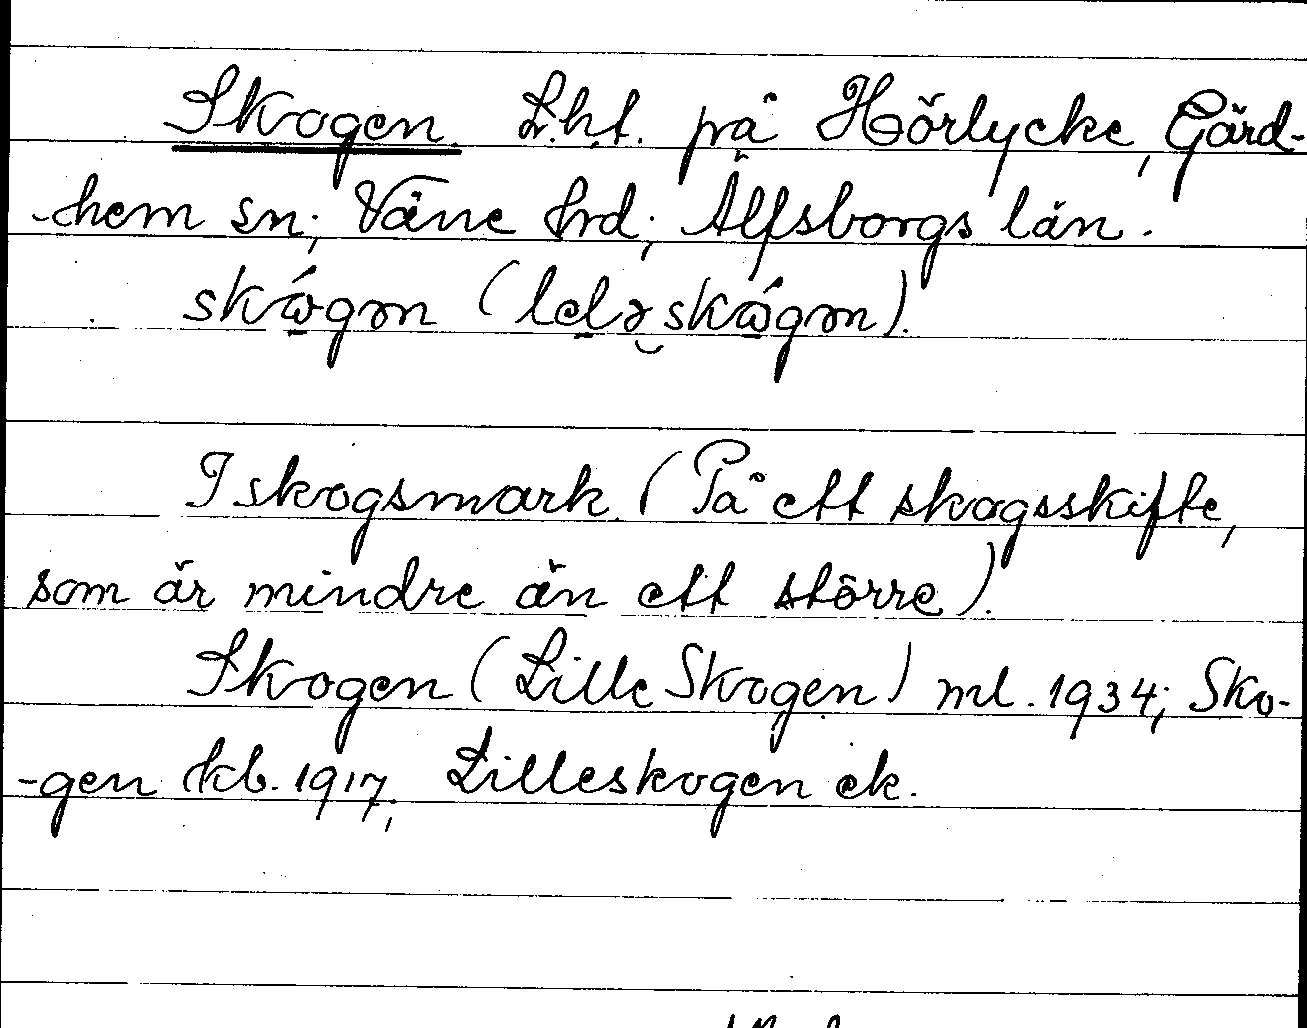 Skogen. L.h.t. på Hörlycke, Gärd-
-hem sn; Väne hrd; Älfsborgs län.
skógən (lelə skógən).
I skogsmark. (På ett skogsskifte,
som är mindre än ett större).
Skogen (Lille Skogen) ml. 1934; Sko-
-gen kb. 1917; Lilleskogen ek.